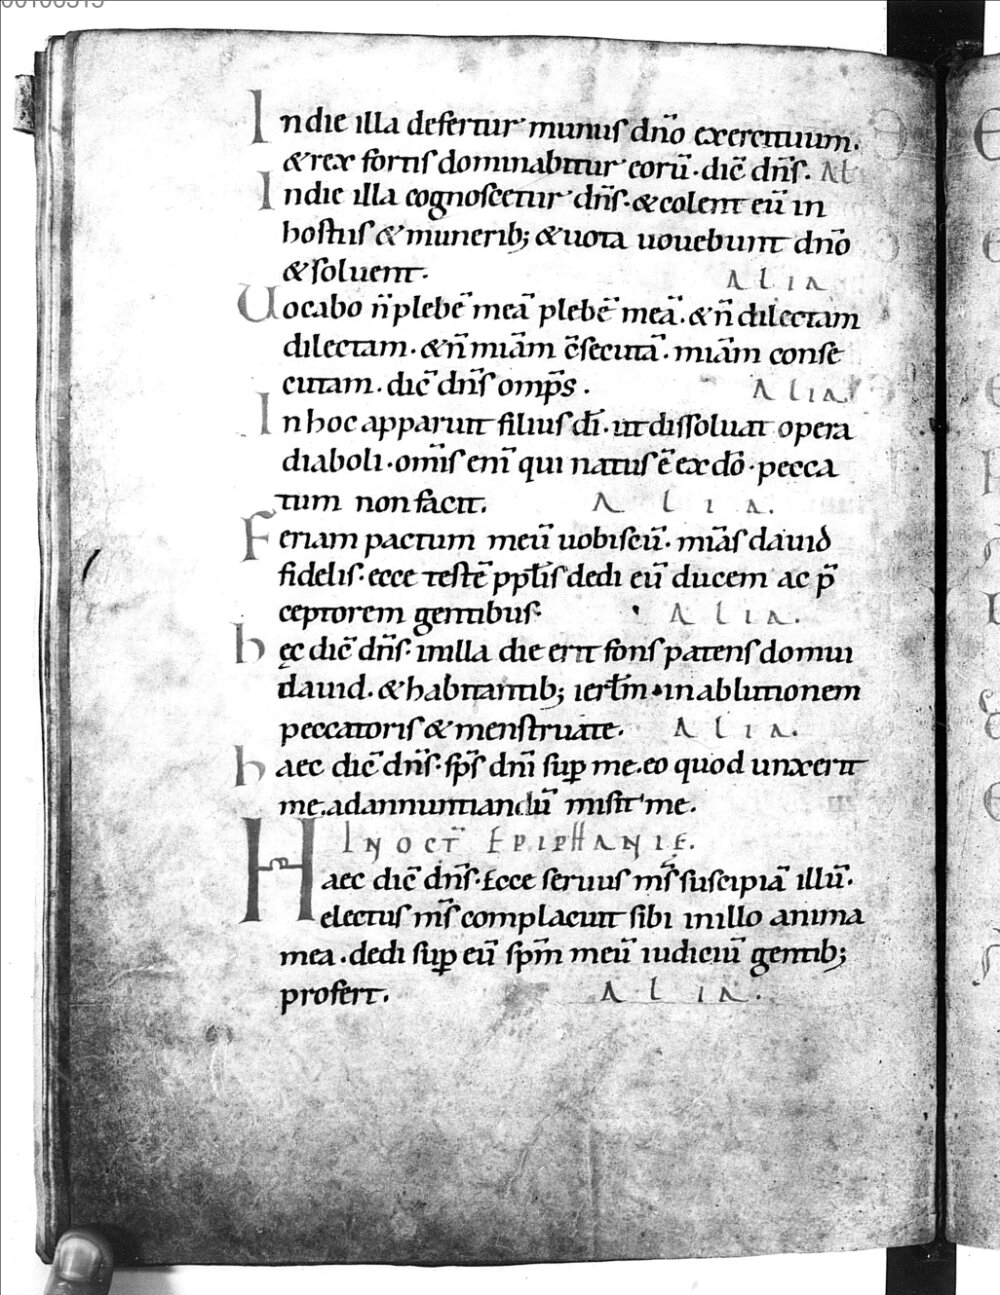 00106515
In die illa defertur munus dn̄o exercituum.
& rex fortis dominabitur eorū. dic̄ dn̄s. Al
In die illa cognoscetur dn̄s. & colent eū in
hostiis & munerib; & uota uouebunt dn̄o
& soluent. Alia
Uocabo n̄ plebē meā plebē meā. & n̄ dilectam
dilectam. & n̄ miām c̄secutā. miām conse
cutam. dic̄ dn̄s omp̄s. Alia
In hoc apparuit filius dī. ut dissoluat opera
diaboli. om̄is enī qui natus ē ex dō. pecca
tum non facit. Alia.
Feriam pactum meū uobiscū. miās dauid
fidelis. ecce testē pplīs dedi eū ducem ac p̄
ceptorem gentibus. Alia.
hęc dic̄ dn̄s. in illa die erit fons patens domui
dauid. & habitantib; ierlm̄. in ablutionem
peccatoris & menstruate. Alia.
haec dic̄ dn̄s. sp̄s dn̄i sup me. eo quod unxerit
me. ad annuntiandū misit me.
IN OCT̄ EPIPHANIE.
Haec dic̄ dn̄s. Ecce seruus m̄s suscipiā illū.
electus m̄s complacuit sibi in illo anima
mea. dedi sup eū sp̄m meū iudiciū gentib;
profert. Alia.